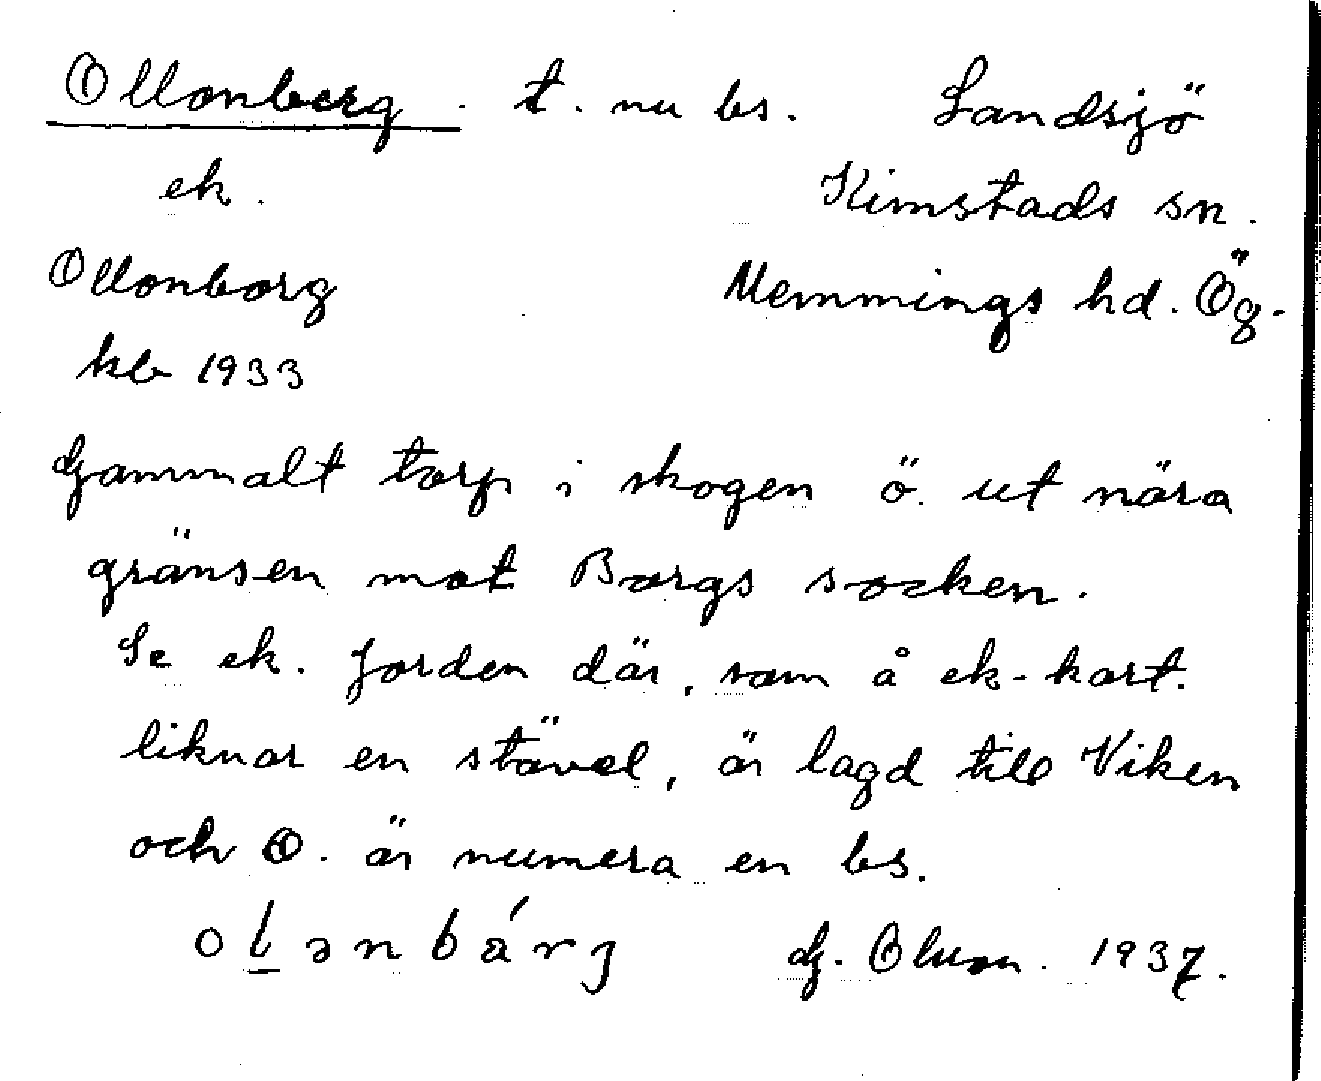 Ollonberg. t. nu bs. Landsjö
ek. Kimstads sn.
Ollonborg Memmings hd. Ög.
kb 1933
Gammalt torp i skogen ö. ut nära
gränsen mot Borgs socken.
Se ek. Jorden där, som å ek-kart.
liknar en stövel, är lagd till Viken
och O. är numera en bs.
olənbárj G. Olson. 1937.